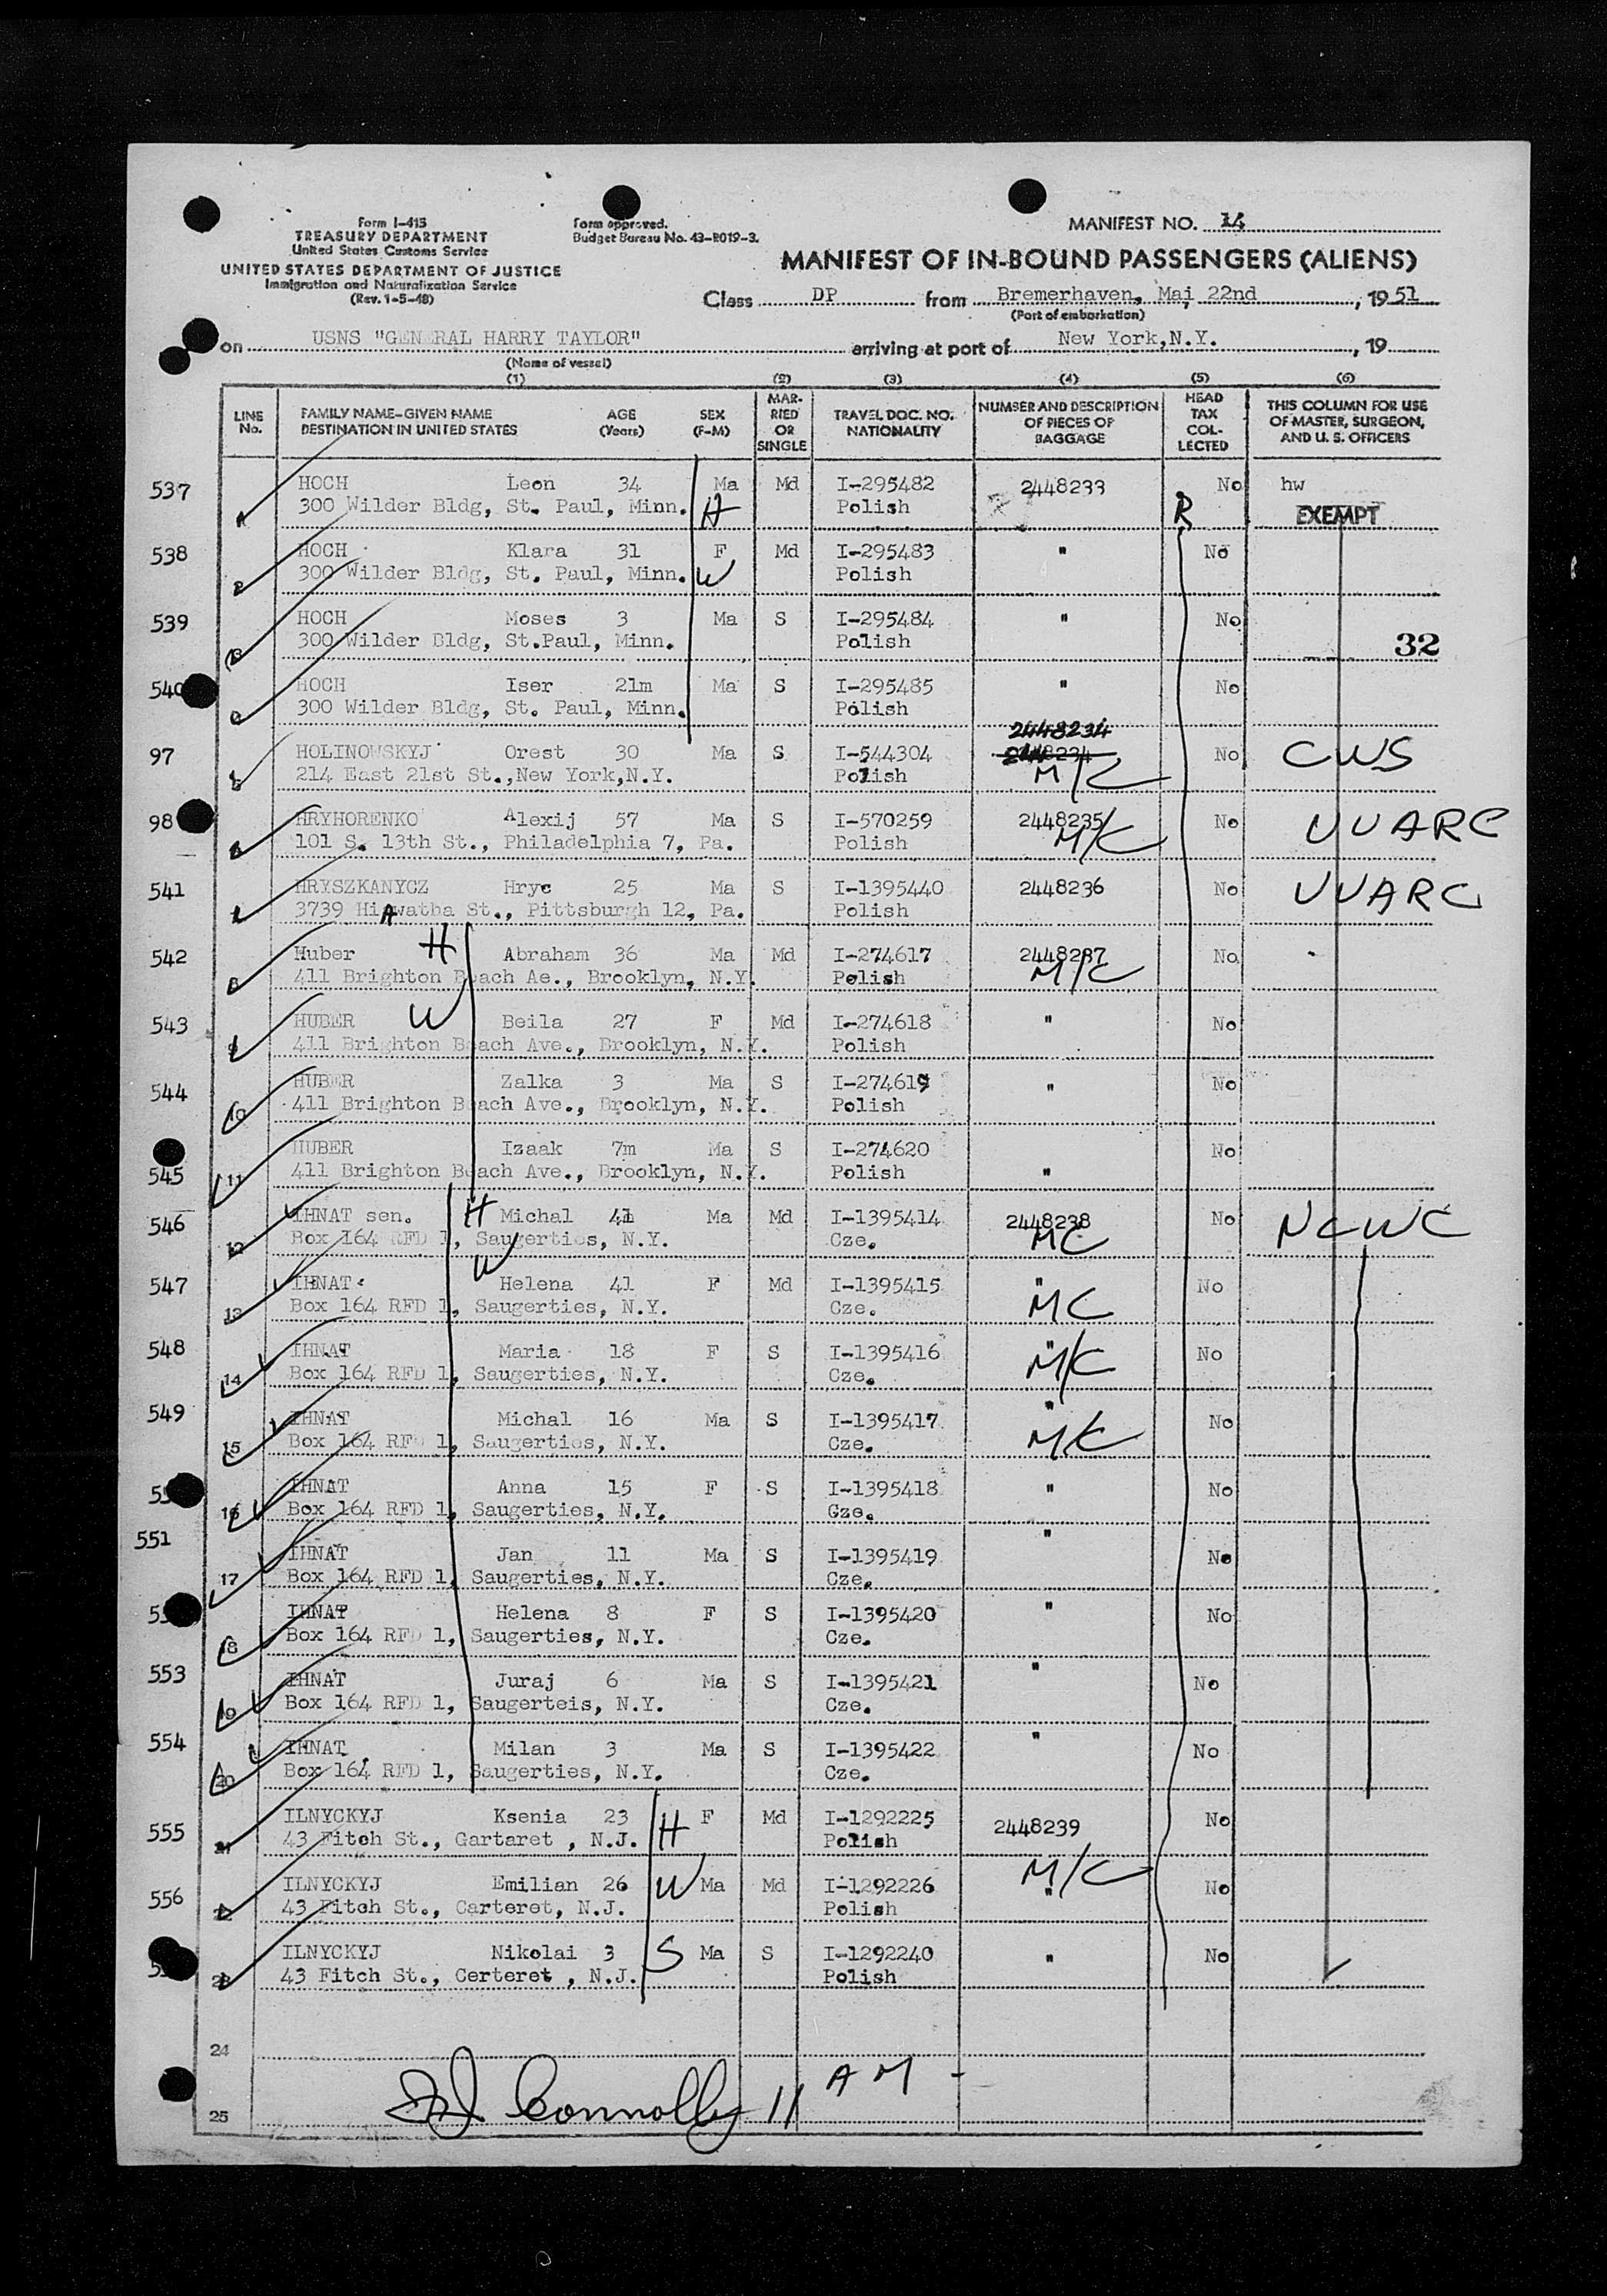 Form I-415
TREASURY DEPARTMENT
United States Customs Service
UNITED STATES DEPARTMENT OF JUSTICE
Immigration and Naturalization Service
(Rev. 1-5-48)
Form approved.
Budget Bureau No. 43-R019-3.
MANIFEST NO. 14
MANIFEST OF IN-BOUND PASSENGERS (ALIENS)
Class DP from Bremerhaven, Mai 22nd, 1951
(Port of embarkation)
on USNS "GENERAL HARRY TAYLOR" arriving at port of New York,N.Y., 19
(Name of vessel)
(1) (2) (3) (4) (5) (6)
LINE No. FAMILY NAME-GIVEN NAME DESTINATION IN UNITED STATES AGE (Years) SEX (F-M) MARRIED OR SINGLE TRAVEL DOC. NO. NATIONALITY NUMBER AND DESCRIPTION OF PIECES OF BAGGAGE HEAD TAX COLLECTED THIS COLUMN FOR USE OF MASTER, SURGEON, AND U. S. OFFICERS
537 HOCH Leon 34 Ma Md I-295482 2448233 No hw
300 Wilder Bldg, St. Paul, Minn. H Polish R EXEMPT
538 HOCH Klara 31 F Md I-295483 " No
2 300 Wilder Bldg, St. Paul, Minn. W Polish
539 HOCH Moses 3 Ma S I-295484 " No
3 300 Wilder Bldg, St.Paul, Minn. Polish 32
540 HOCH Iser 21m Ma S I-295485 " No
300 Wilder Bldg, St. Paul, Minn. Polish
2448234
97 HOLINOWSKYJ Orest 30 Ma S I-544304 2448234 No CWS
5 214 East 21st St.,New York,N.Y. Polish M/C
98 HRYHORENKO Alexij 57 Ma S I-570259 2448235 No UUARC
101 S. 13th St., Philadelphia 7, Pa. Polish M/C
541 HRYSZKANYCZ Hryc 25 Ma S I-1395440 2448236 No UUARC
3739 HiAwatha St., Pittsburgh 12, Pa. Polish
542 Huber H Abraham 36 Ma Md I-274617 2448237 No
8 411 Brighton Beach Ae., Brooklyn, N.Y. Polish M/C
543 HUBER W Beila 27 F Md I-274618 " No
9 411 Brighton Beach Ave., Brooklyn, N.Y. Polish
544 HUBER Zalka 3 Ma S I-274619 " No
10 411 Brighton Beach Ave., Brooklyn, N.Y. Polish
HUBER Izaak 7m Ma S I-274620 No
545 11 411 Brighton Beach Ave., Brooklyn, N.Y. Polish "
546 IHNAT sen. H Michal 41 Ma Md I-1395414 2448238 No NCWC
12 Box 164 RFD 1, Saugerties, N.Y. Cze. MC
547 IHNAT W Helena 41 F Md I-1395415 " No
13 Box 164 RFD 1, Saugerties, N.Y. Cze. MC
548 IHNAT Maria 18 F S I-1395416 " No
14 Box 164 RFD 1, Saugerties, N.Y. Cze. M/C
549 IHNAT Michal 16 Ma S I-1395417 " No
15 Box 164 RFD 1, Saugerties, N.Y. Cze. M/C
IHNAT Anna 15 F S I-1395418 " No
16 Box 164 RFD 1, Saugerties, N.Y. Gze.
551 IHNAT Jan 11 Ma S I-1395419 " No
17 Box 164 RFD 1, Saugerties, N.Y. Cze.
IHNAT Helena 8 F S I-1395420 " No
18 Box 164 RFD 1, Saugerties, N.Y. Cze.
553 IHNAT Juraj 6 Ma S I-1395421 " No
19 Box 164 RFD 1, Saugerteis, N.Y. Cze.
554 IHNAT Milan 3 Ma S I-1395422 " No
20 Box 164 RFD 1, Saugerties, N.Y. Cze.
555 ILNYCKYJ Ksenia 23 F Md I-1292225 2448239 No
21 43 Fitch St., Gartaret , N.J. H Polish
556 ILNYCKYJ Emilian 26 W Ma Md I-1292226 M/C " No
43 Fitch St., Carteret, N.J. Polish
ILNYCKYJ Nikolai 3 S Ma S I-1292240 " No
23 43 Fitch St., Certeret , N.J. Polish
24
Connolly 11 AM -
25